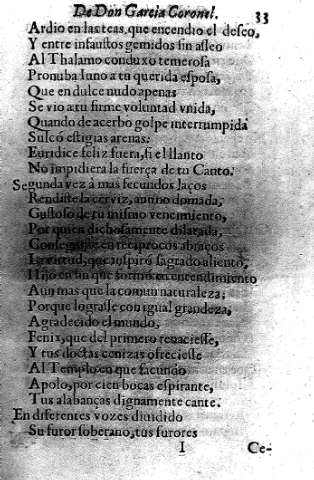 De Don Garcia Coronel. 33
Ardio en las teas, que encendio el deseo,
Y entre infaustos gemidos sin asseo
Al Thalamo conduxo temerosa
Pronuba Iuno a tu querida esposa,
Que en dulce nudo apenas
Se vio a tu firme voluntad vnida,
Quando de acerbo golpe interrumpida
Sulcó estigias arenas:
Euridice feliz fuera, si el llanto
No impidiera la fuerça de tu Canto.
Segunda vez à mas fecundos laços
Rendiste la cerviz, aun no domada,
Gustoso de tu mismo vencimiento,
Por quien dichosamente dilatada,
Conseguiste en reciprocos abraços
que inspiró sagrado aliento,
Hijo en fin que formó en entendimiento
Aun mas que la comun naturaleza;
Porque lograsse con igual grandeza,
Agradecido el mundo,
Fenix, que del primero renaciesse,
Y tus doctas cenizas ofreciesse
Al Templo en que facundo
Apolo, por cien bocas espirante,
Tus alabanças dignamente cante.
En diferentes vozes diuidido
Su furor soberano, tus furores
I Ce-